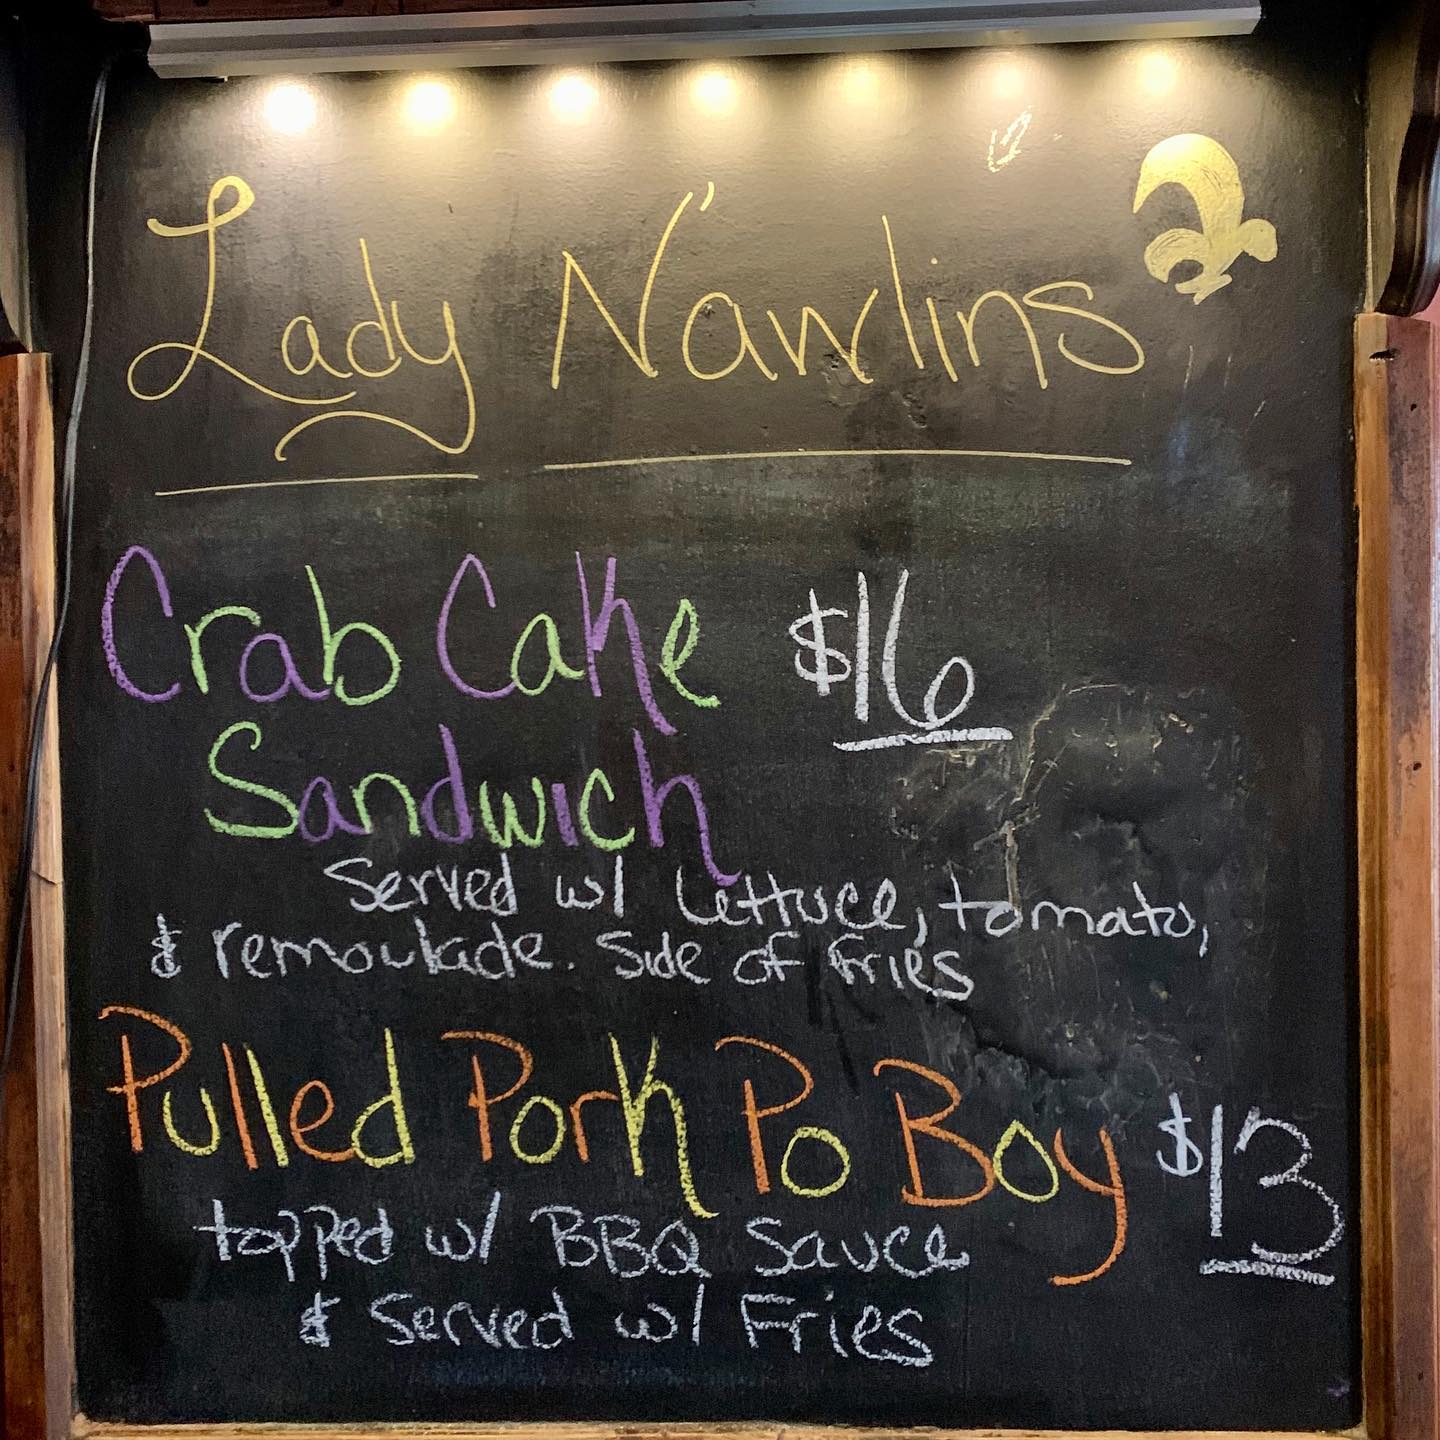 Lady N'awlins
Crab Cake $16
Sandwich
Served w/ Lettuce, tomato,
& remoulade. Side of Fries
Pulled Pork Po Boy $13
topped w/ BBQ Sauce
& Served w/ Fries